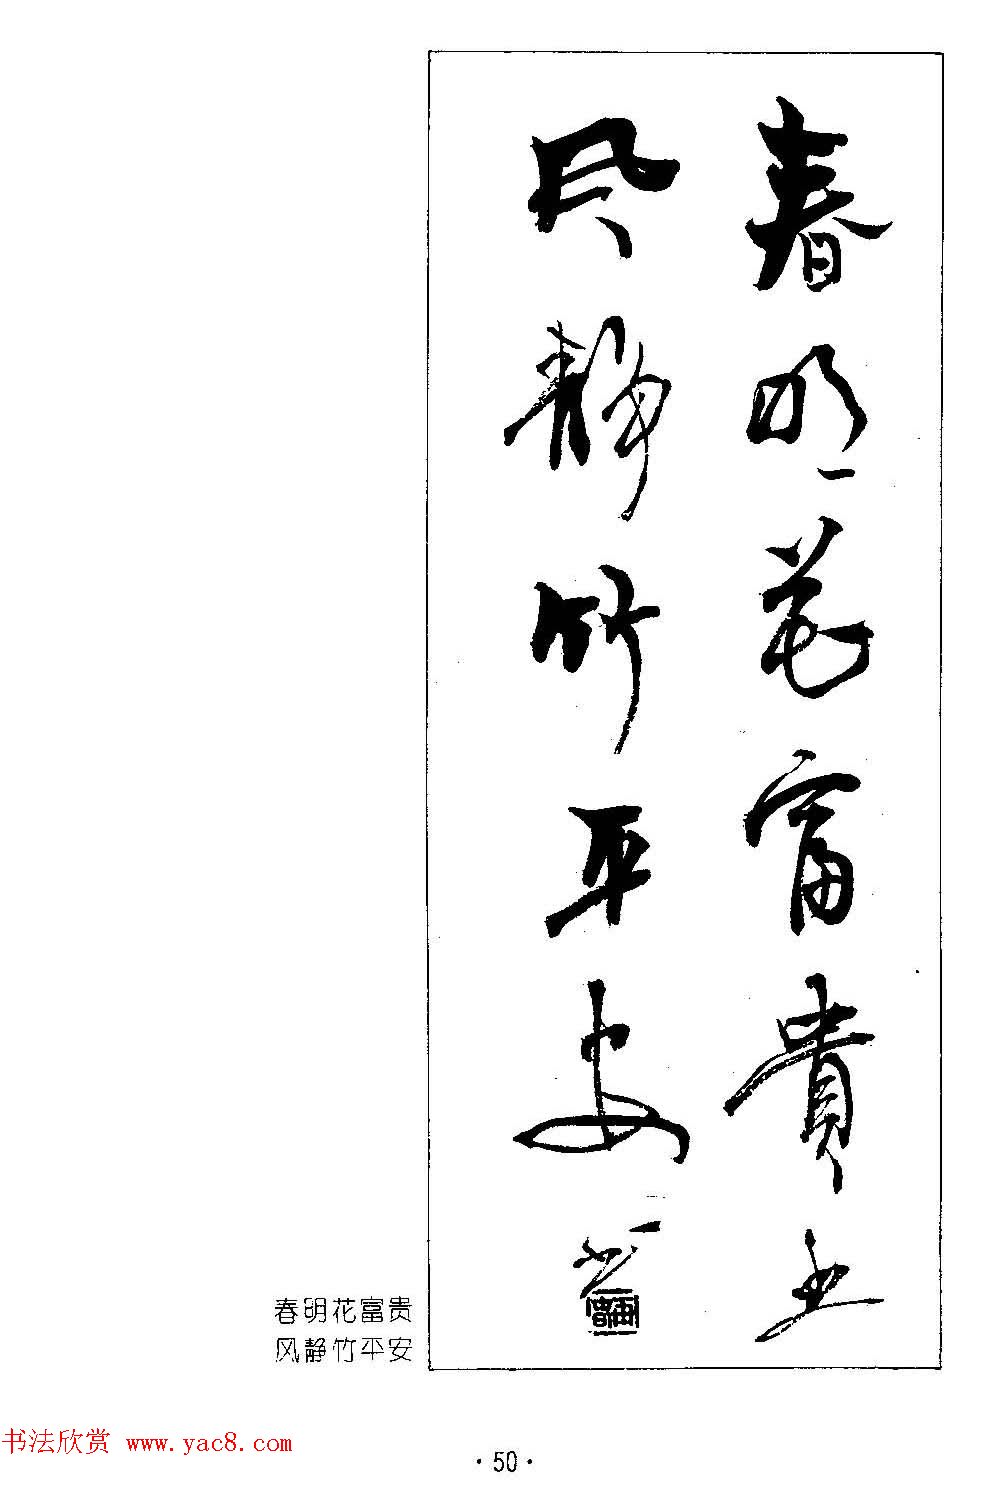 春明花富贵
风静竹平安
春明花富貴
风静竹平安
书法欣赏 www.yac8.com
·50·